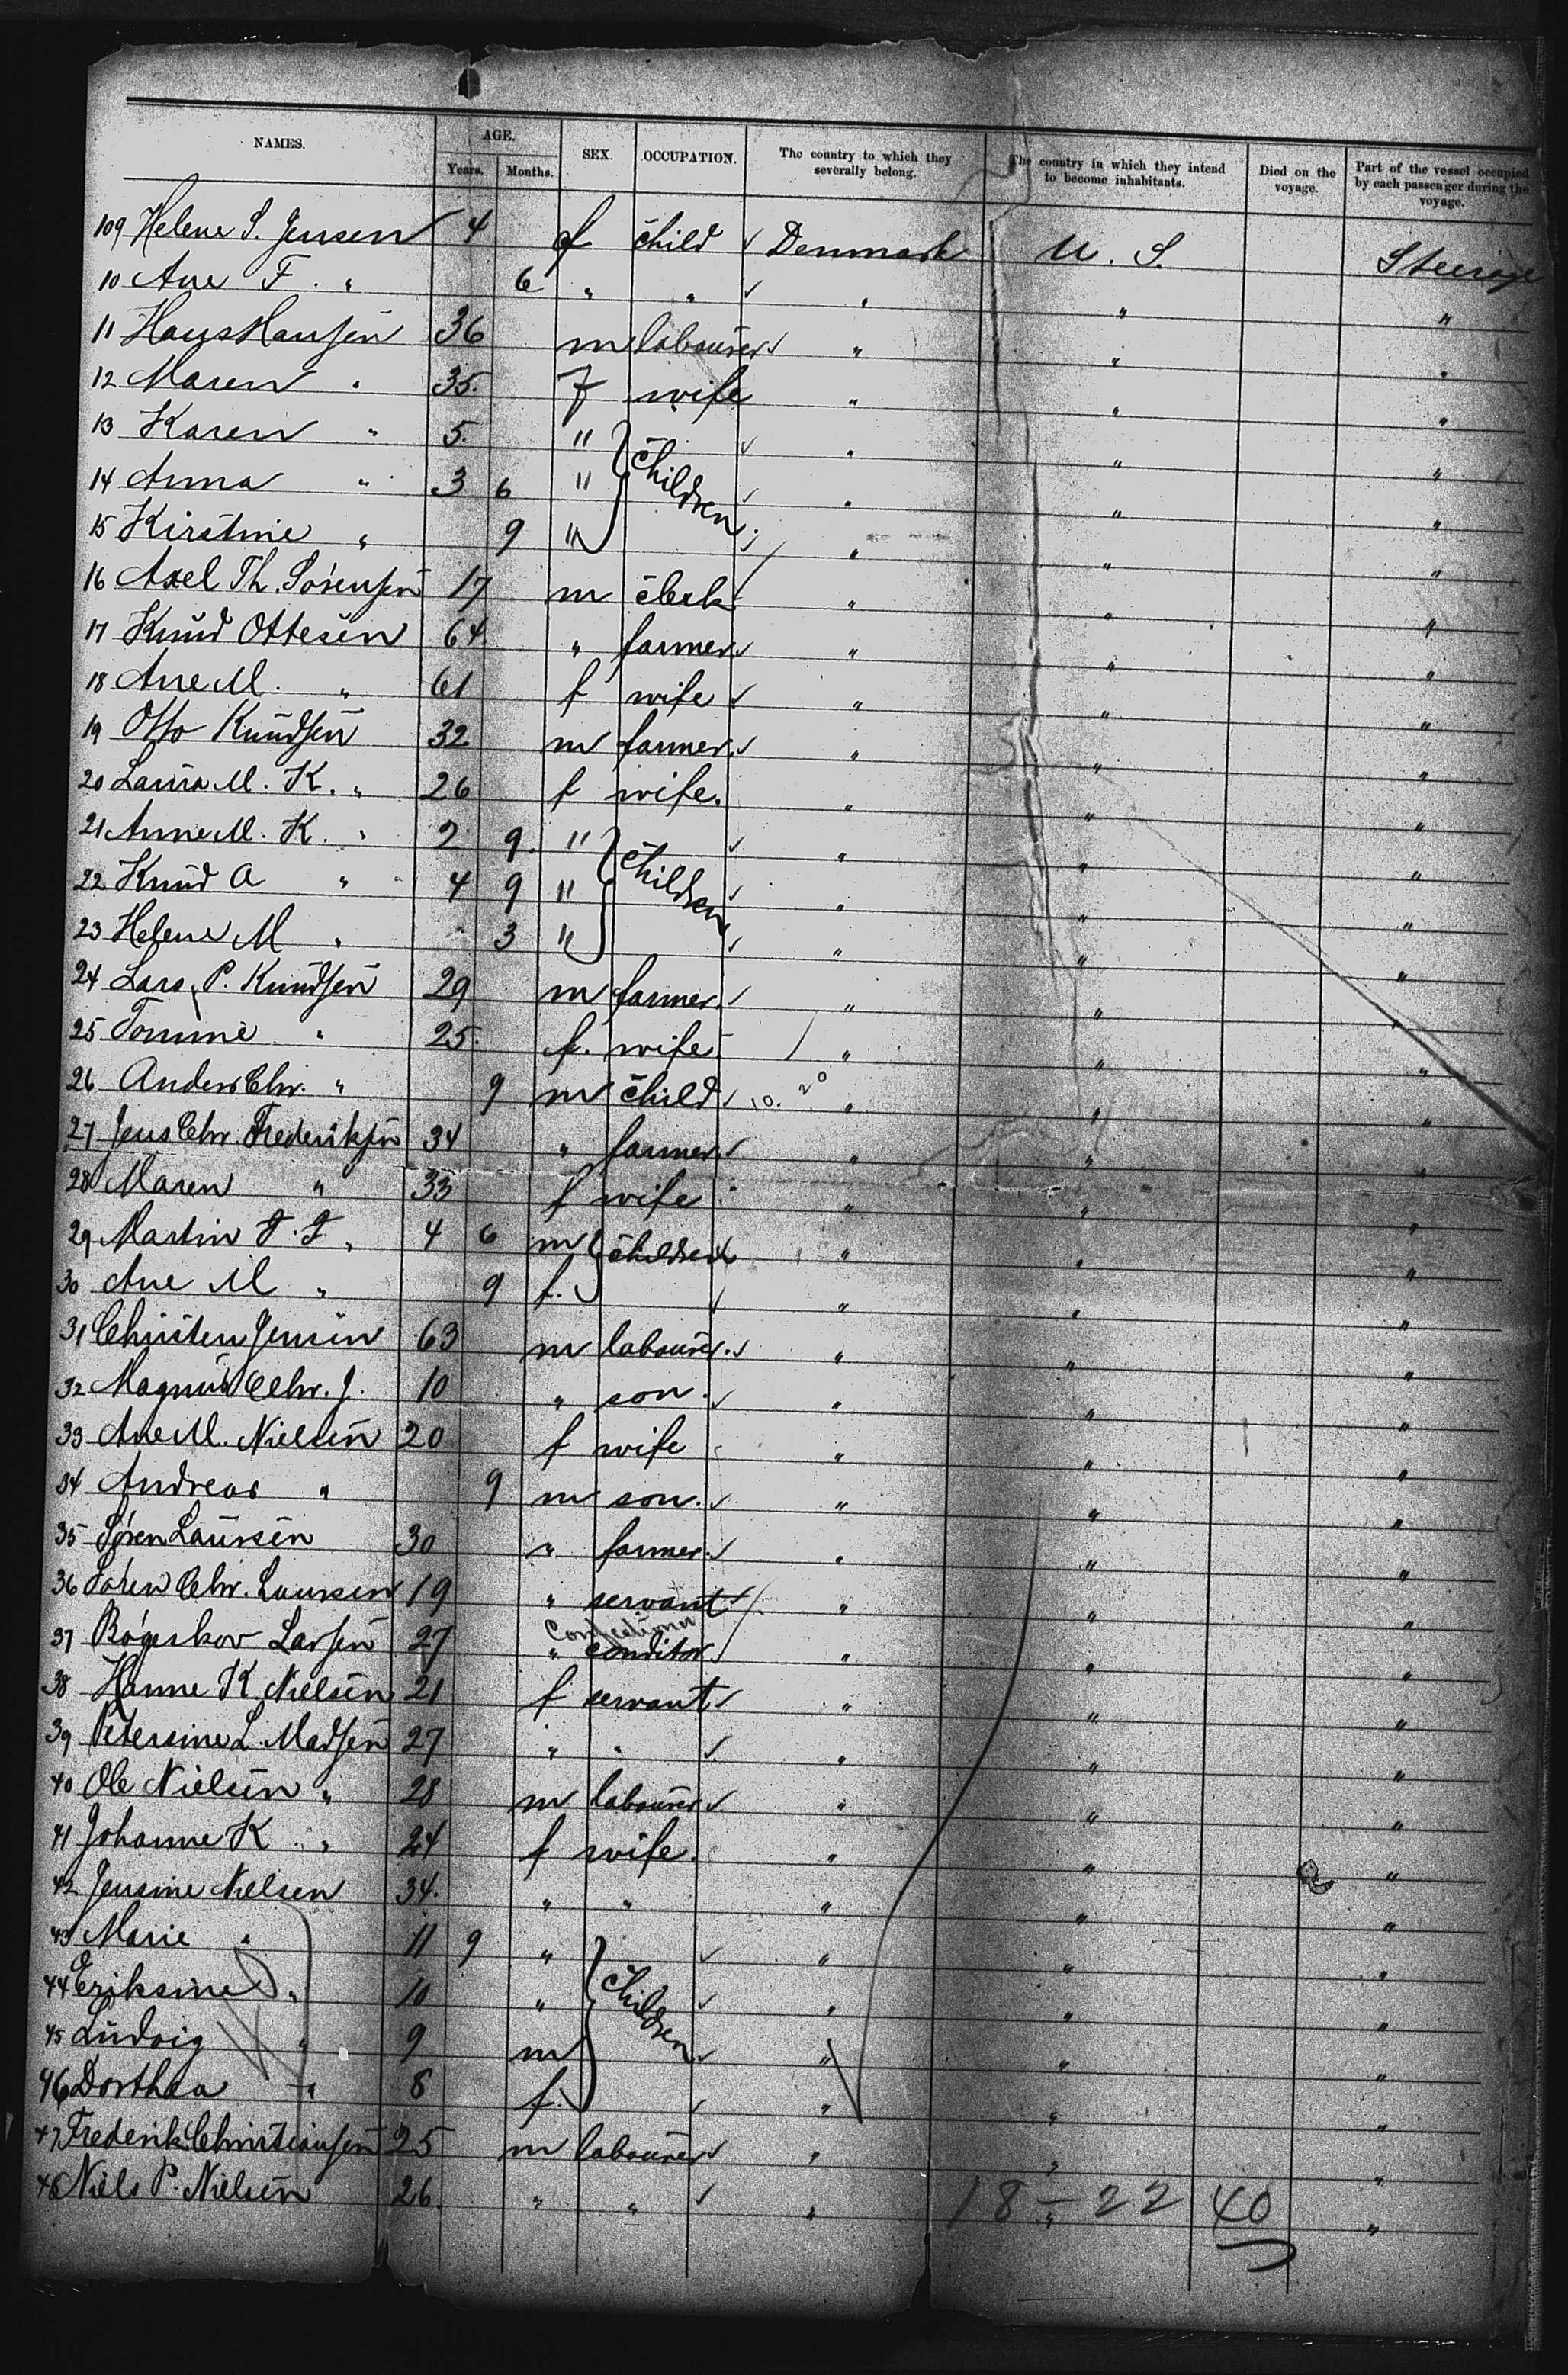 NAMES. AGE. Years. Months. SEX. OCCUPATION. The country to which they severally belong. The country in which they intend to become inhabitants. Died on the voyage. Part of the vessel occupied by each passenger during the voyage.
109 Helene S. Jensen 4 f child ✓ Denmark U. S. Steerage
10 Ane F. " 6 " " ✓ " " "
11 Hans Hansen 36 m labourer ✓ " " "
12 Maren " 35. f wife " " "
13 Karen " 5. " ✓ " " "
14 Anna " 3 6 " children ✓ " " "
15 Kirstine " 9 " " " "
16 Axel Th. Sörensen 17 m clerk " " "
17 Knud Ottesen 64. " farmer ✓ " " "
18 Ane M. " 61 f wife ✓ " " "
19 Otto Knudsen 32 m farmer ✓ " " "
20 Laura M. K. " 26 f wife. " " "
21 Anne M. K. " 2 9. " ✓ " " "
22 Knud A " 4 9 " children ✓ " " "
23 Helene M " 3 " ✓ " " "
24 Lars P. Knudsen 29 m farmer ✓ " " "
25 Tomine " 25. f. wife " " "
26 Anders Chr. " 9 m child ✓ 10. 20 " " "
27 Jens Chr. Frederiksen 34 " farmer ✓ " " "
28 Maren " 33 f wife " " "
29 Martin F. F. " 4 6 m children " " "
30 Ane M " 9 f. ✓ " " "
31 Christen Jensen 63 m labourer. ✓ " " "
32 Magnus Chr. J. 10 " son. ✓ " " "
33 Ane M. Nielsen 20 f wife " " "
34 Andreas " 9 m son. ✓ " " "
35 Sören Laursen 30 " farmer ✓ " " "
36 Sören Chr. Laursen 19 " servant ✓ " " "
Confectioner
37 Bögeskov Larsen 27 " conditor " " "
38 Hanne K. Nielsen 21 f servant ✓ " " "
39 Petersine L. Madsen 27 " " ✓ " " "
40 Ole Nielsen " 28 m labourer ✓ " " "
41 Johanne K. " 24 f wife. " " "
42 Jensine Nielsen 34. " " " " "
43 Marie " 11 9 " ✓ " " "
44 Eriksine " 10 " children ✓ " " "
45 Ludvig " 9 m ✓ " " "
46 Dorthea " 8 f. ✓ " " "
47 Frederik Christiansen 25 m labourer ✓ " " "
48 Niels P. Nielsen 26. " " ✓ " " "
18 - 22 40